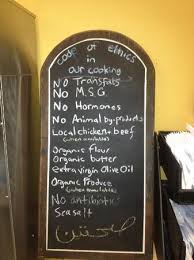 code of ethics
in
our cooking
No Transfats
No M.S.G.
No Hormones
No Animal by-products
Local chicken + beef
(when available)
Organic flour
Organic butter
extra virgin Olive Oil
Organic Produce
(when available)
No antibiotics
Sea salt